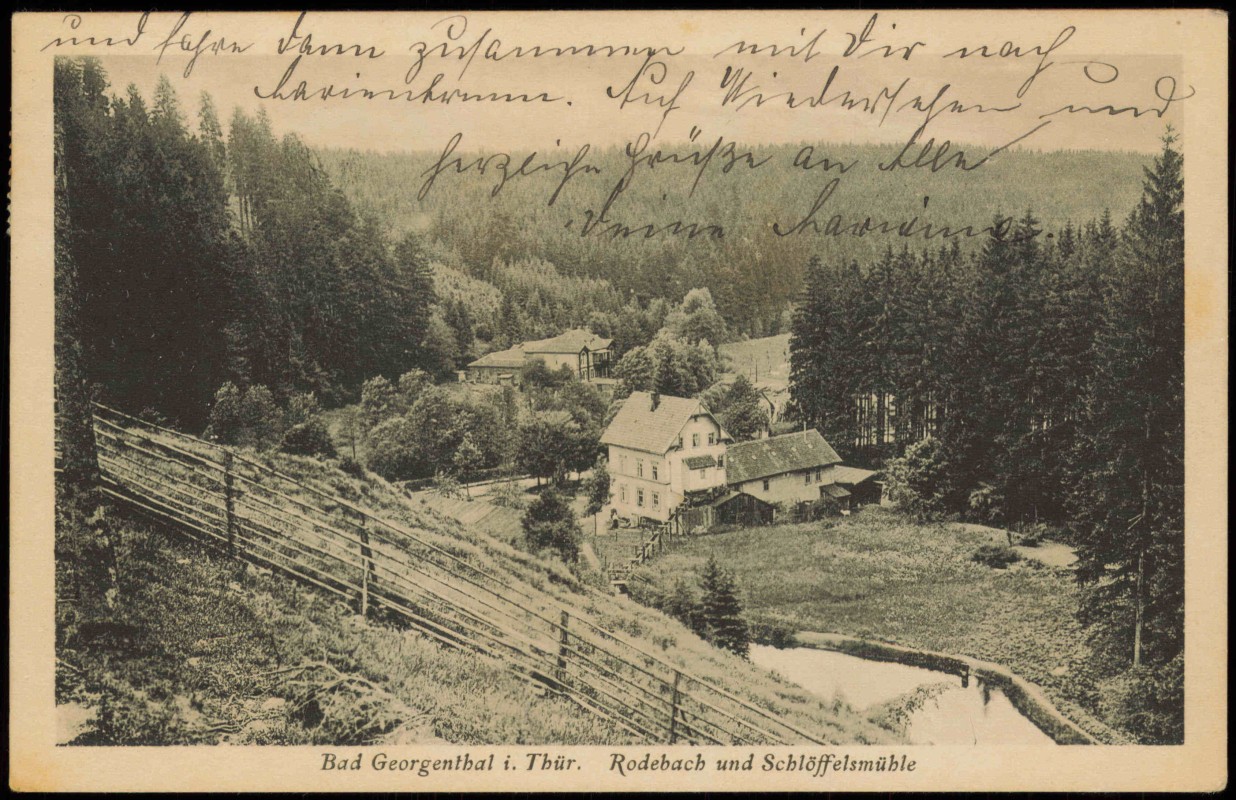 und fahre dann zusammen mit Dir nach
Marienbrunn. Auf Wiedersehen und
herzliche Grüße an Alle
Deine Marianne.
Bad Georgenthal i. Thür. Rodebach und Schlöffelsmühle